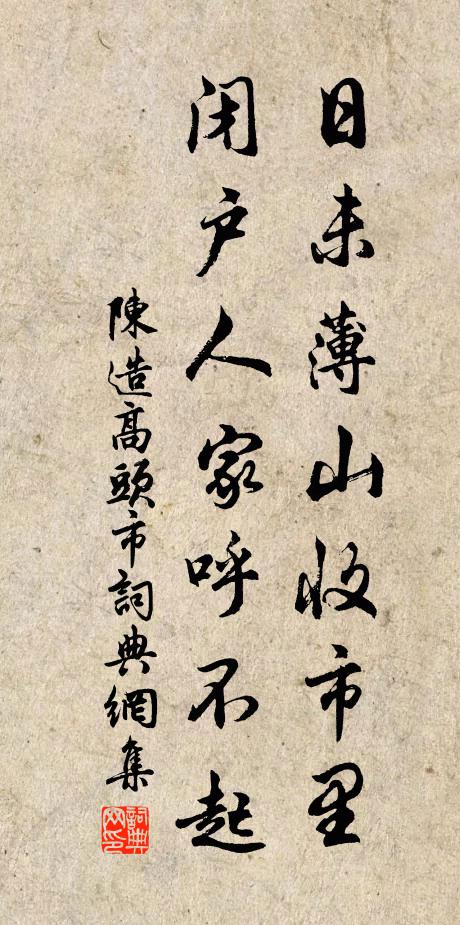 日未薄山收市里
闭户人家呼不起
陳造高頭市詞典網集
詞典网印